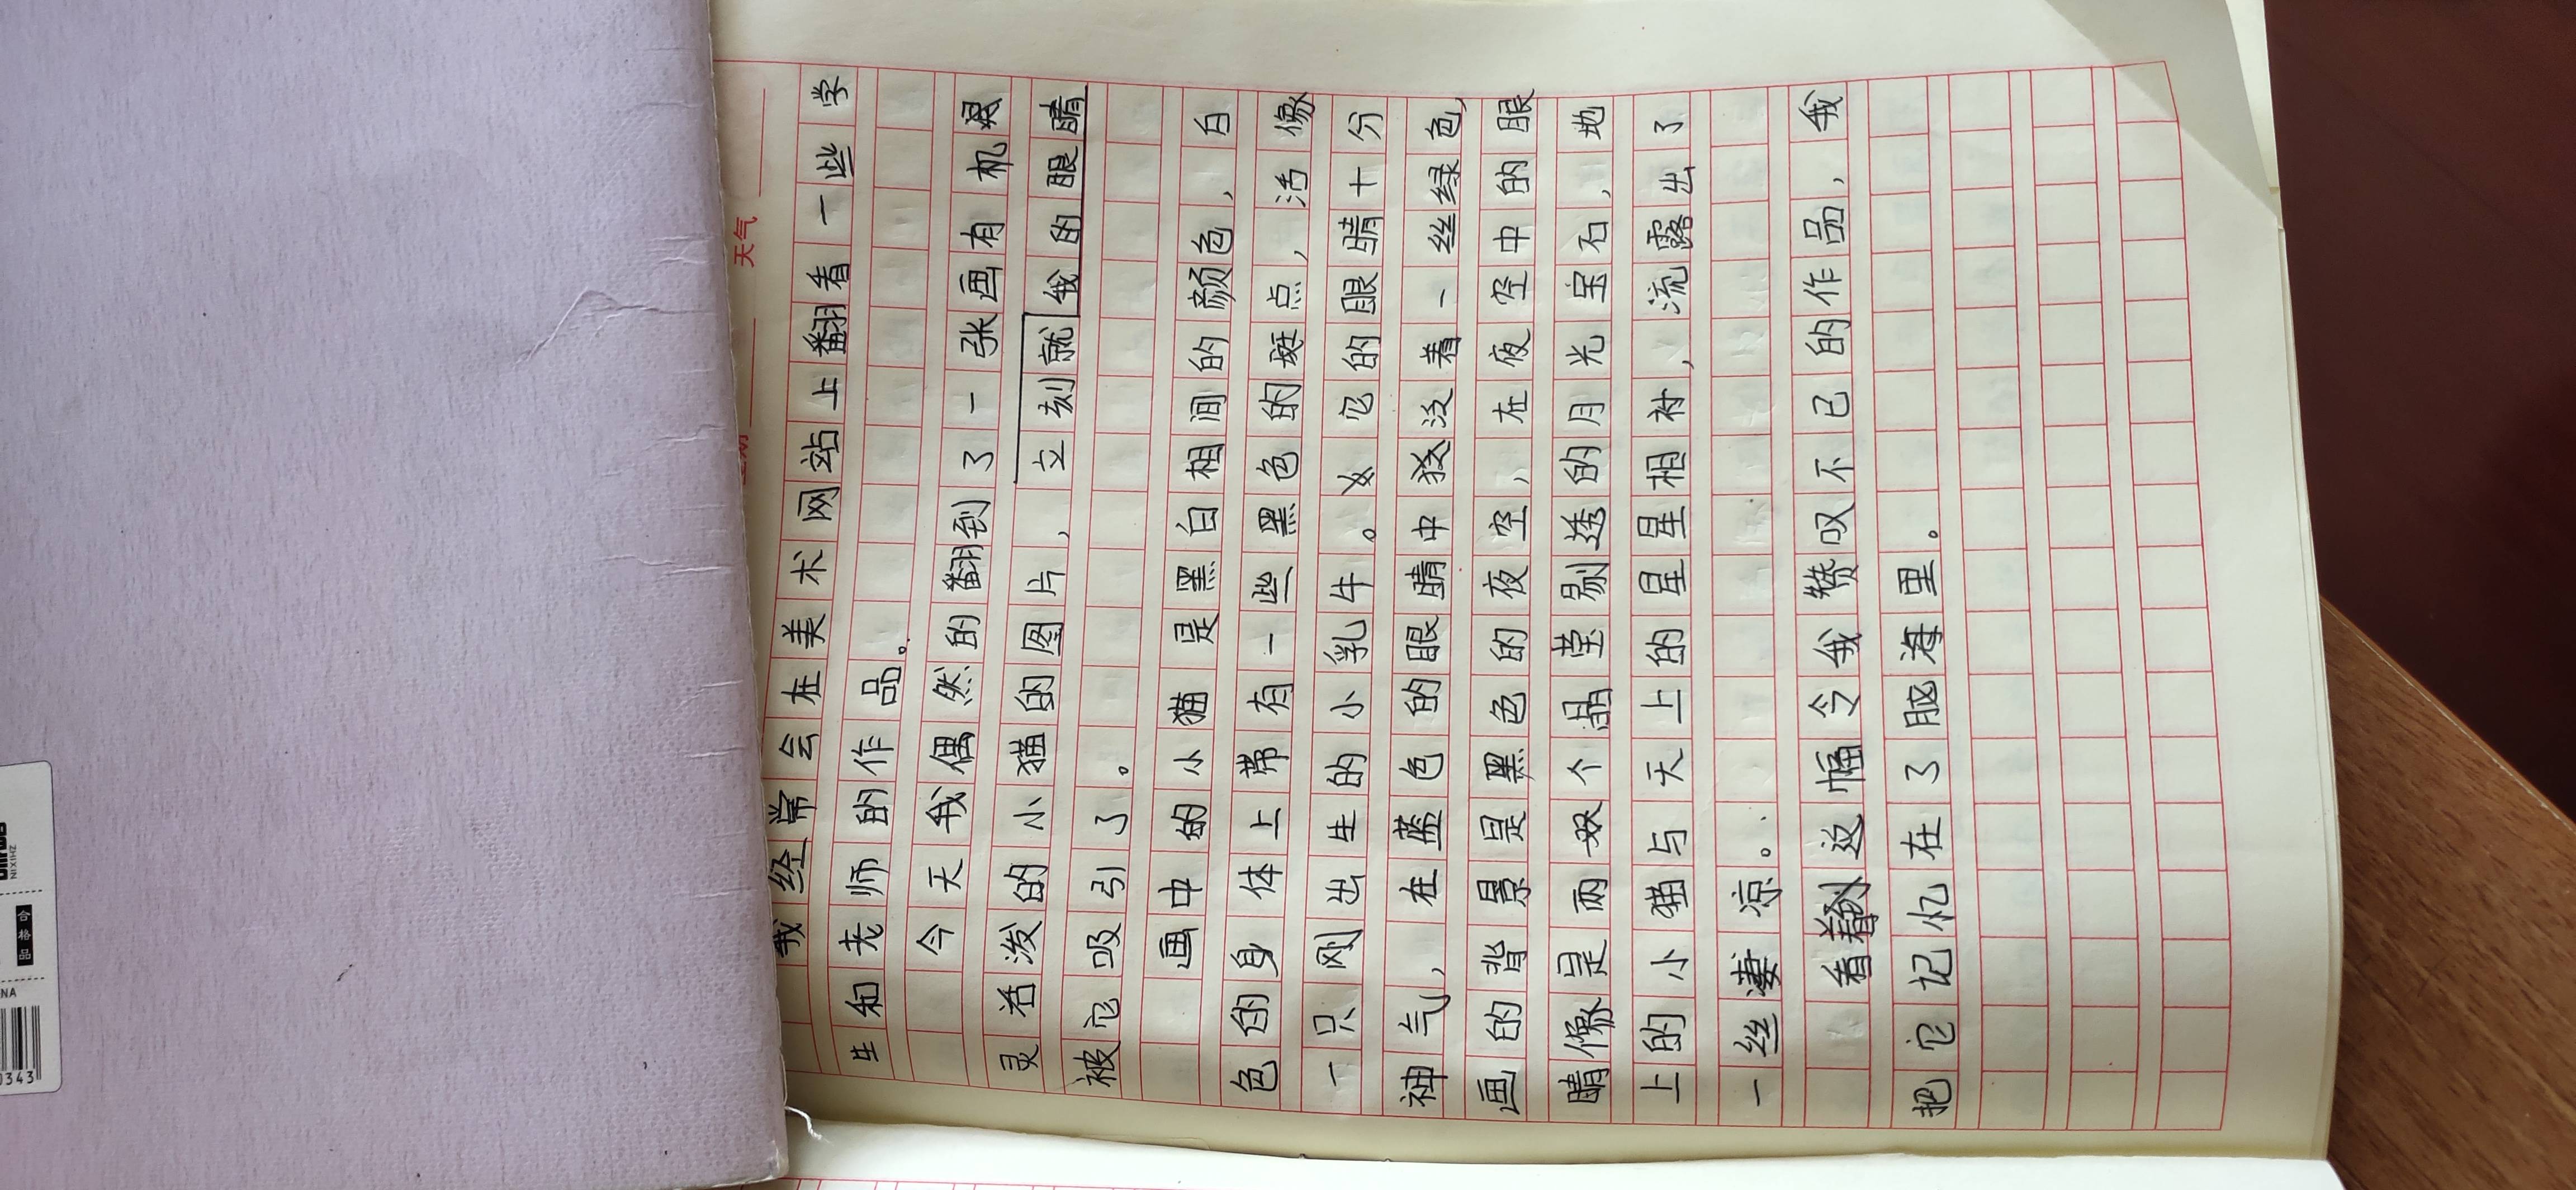 天气
我经常会在美术网站上翻看一些学
生和老师的作品。
今天我偶然的翻到了一张画有机灵
灵活泼的小猫的图片，立刻就我的眼睛
被它吸引了。
画中的小猫是黑白相间的颜色，白
色的身体上带有一些黑色的斑点，活像
一只刚出生的小乳牛。它的眼睛十分
神气，在蓝色的眼睛中泛着一丝绿色，
画的背景是黑色的夜空，在夜空中的眼
睛像是两双个晶莹剔透的月光宝石，地
上的小猫与天上的星星相衬，流露出了
一丝凄凉。
看着这幅令我赞叹不已的作品，我
把它记忆在了脑海里。
合格品
NIXIHZ
NA
0343